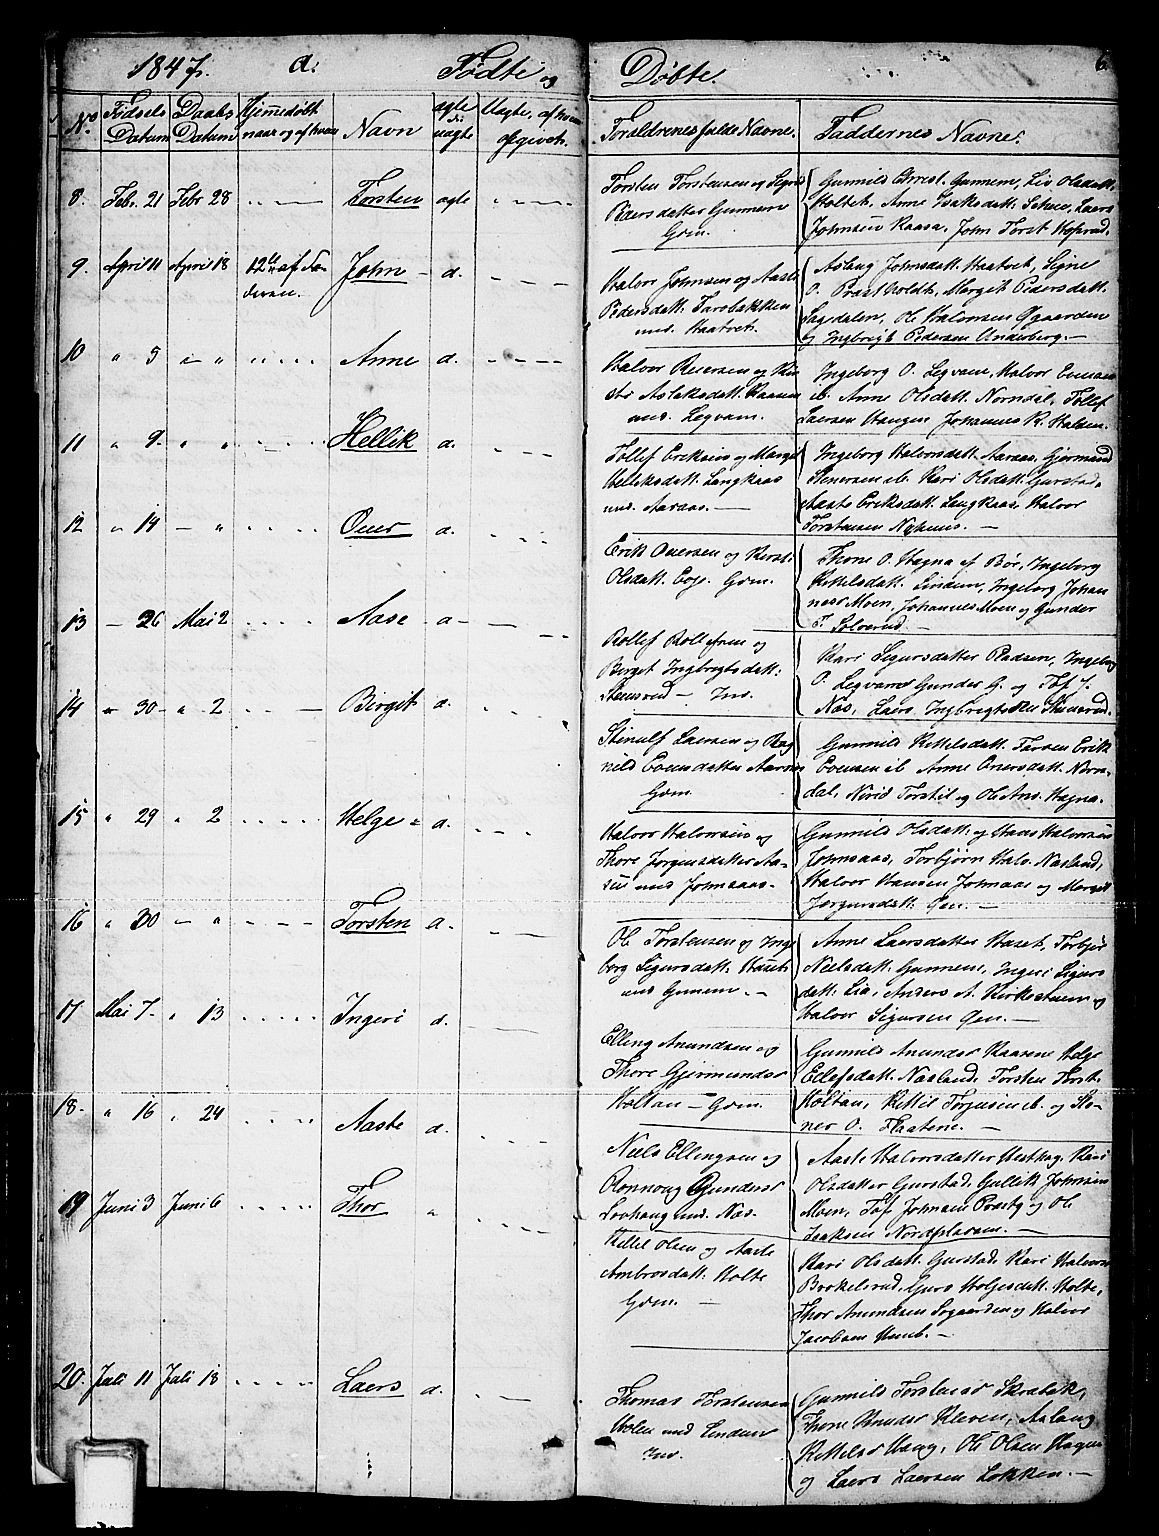 1847. a. Fødte og Døbte. 6.
No. Fødsels Datum Daabs Datum Hjemmedøbt naar og af hvem Navn ægte eller uægte Uægte, af hvem opgivet. Forældrenes fulde Navne. Faddernes Navne.
8. Feb. 21 Febr 28 Torsten ægte
Torsten Torstensen og Signe
Pedersdatter Gunnem
Gdm.
Gunnild Torst. Gunnem, Liv Olsdatt.
Holtet. Anne Isaksdatt. Laers
Johnsen Raasa. John Torst.
9. April 11 April 18 12te af Faderen. John d.
Halvor Johnsen og Aaste
Pedersdatt. Tarebakken
und. Haatvet.
Aslaug Johnsdatt. Haatvet, Signe
O. Præstholdt, Margit Pedersdatt.
Sagdalen, Ole Halvorsen Øgaarden
og Ingbrigt Pedersen Underberg.
10 " 5 Anne d.
Halvor Reiersen og Kirsti Aslaksdatt. Kaasen
und. Legvam.
Ingeborg O. Legvam, Halvor Evensen
ib. Anne Olsdatt. Norndal, Tollef
Laersen Haugen Johannes K. Halsen.
11 " 9 " " Hellik d.
Tollef Eriksen og Margit
Helleksdatt. Langkaas
und. Aaraas.
Ingeborg Halvorsdatt. Aaraas, Gjermund
Stenersen ib. Kari Olsdatt. Gurstad,
Aaste Eriksdatt. Langkaas, Halvor
Torstensen Nyhuus.
12 " 14 " Over d.
Erik Oversen og Kirsti
Olsdatt. Eeje. Gdm.
Thone O. Hagna af Bøe, Ingeborg
Kittelsdatt. Lindem, Ingeborg Johan
nes Moen, Johannes Moen og Gunder
T. Solverud.
13 26 Mai 2 Aase d
Rollef Rollefsen og
Birget Ingbregtsdatt.
Stensrud Ind.
Kari Sigursdatter Pladsen, Ingeborg
O. Legvam Gunder G. og Tof J.
Næs, Laers Ingbregtsen Stensrud.
14 " 30 " 2 Birgit d.
Steinulf Laersen og Rag
nild Evensdatter Aarnes
Gdm.
Gunnild Kittelsdatt. Erik
Evensen ib Anne Oversdatt. Norn
dal, Nirid Torstil og Ole Ans. Hagna.
15 " 29 " 2 Helge d.
Halvor Halvorsen og
Thore Jørgensdatter Aa-
sen und Johnsaas.
Gunnild Olsdatt. og Hans Halvorsen
Johnsaas, Torbjørn Halv. Næslund,
Halvor Hansen Johnsaas og Margit
Jørgensdatt. Øen.
16 " 30 " Torsten d.
Ole Torstensen og Inge
borg Sigursdatt. Haset
und Gunnem.
Anne Laersdatter Haset, Torbjør
Neelsdatt. Gunnem, Ingeri Sigurs
datt. Lia, Anders A. Kirkestuen og
Halvor Sigursen Øen.
17 Mai 7 " 13 Ingeri d.
Elling Anundsen og
Thore Gjermundsd
Holtan Gdm.
Gunnild Anundsd Kaasene Helge
Ellefsdatt. Næslund, Torsten Torst.
Holtan, Kittil Torjusen ib. og Ste-
ner O. Flaatene.
18 " 16 " 24 Aaste d.
Niels Ellingsen og
Rønnoug Gundersd
Lovhaug und. Næs.
Aaste Halvorsdatter Hesthag. Kari
Olsdatter Gurstad, Gullik Johnsen
Moen, Tof Johnsen Præstg og Ole
Isaksen Nordplassen.
19 Juni 3 Juni 6 Thor "
Kittel Olsen og Aaste
Ambrosdatt. Holte
Gdm.
Kari Olsdatt. Gurstad, Kari Halvorsd
Borkelsrud. Guro Holjesdatt. Holte,
Thor Anundsen Sogaarden og Halvor
Jacobsen
20. Juli 11 Juli 18 Laers d.
Thomas Torstensen
Holen und Lindem
Ind.
Gunnild Torstensd Skrabek,
Thone Knudsd Kleven, Aslaug
Kittilsd Haug, Ole Olsen Hagna
og Laers Laersen Løkken.